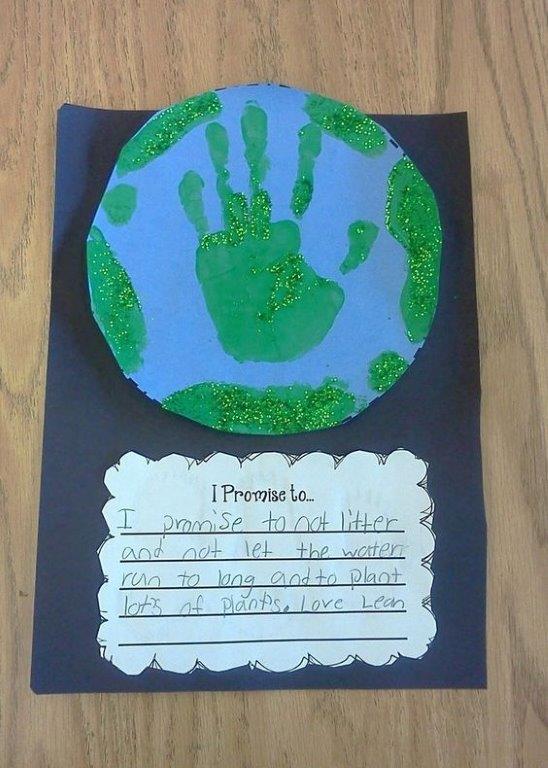 I Promise to...
I promise to not litter
and not let the water
run to long and to plant
lots of plants. Love Lean